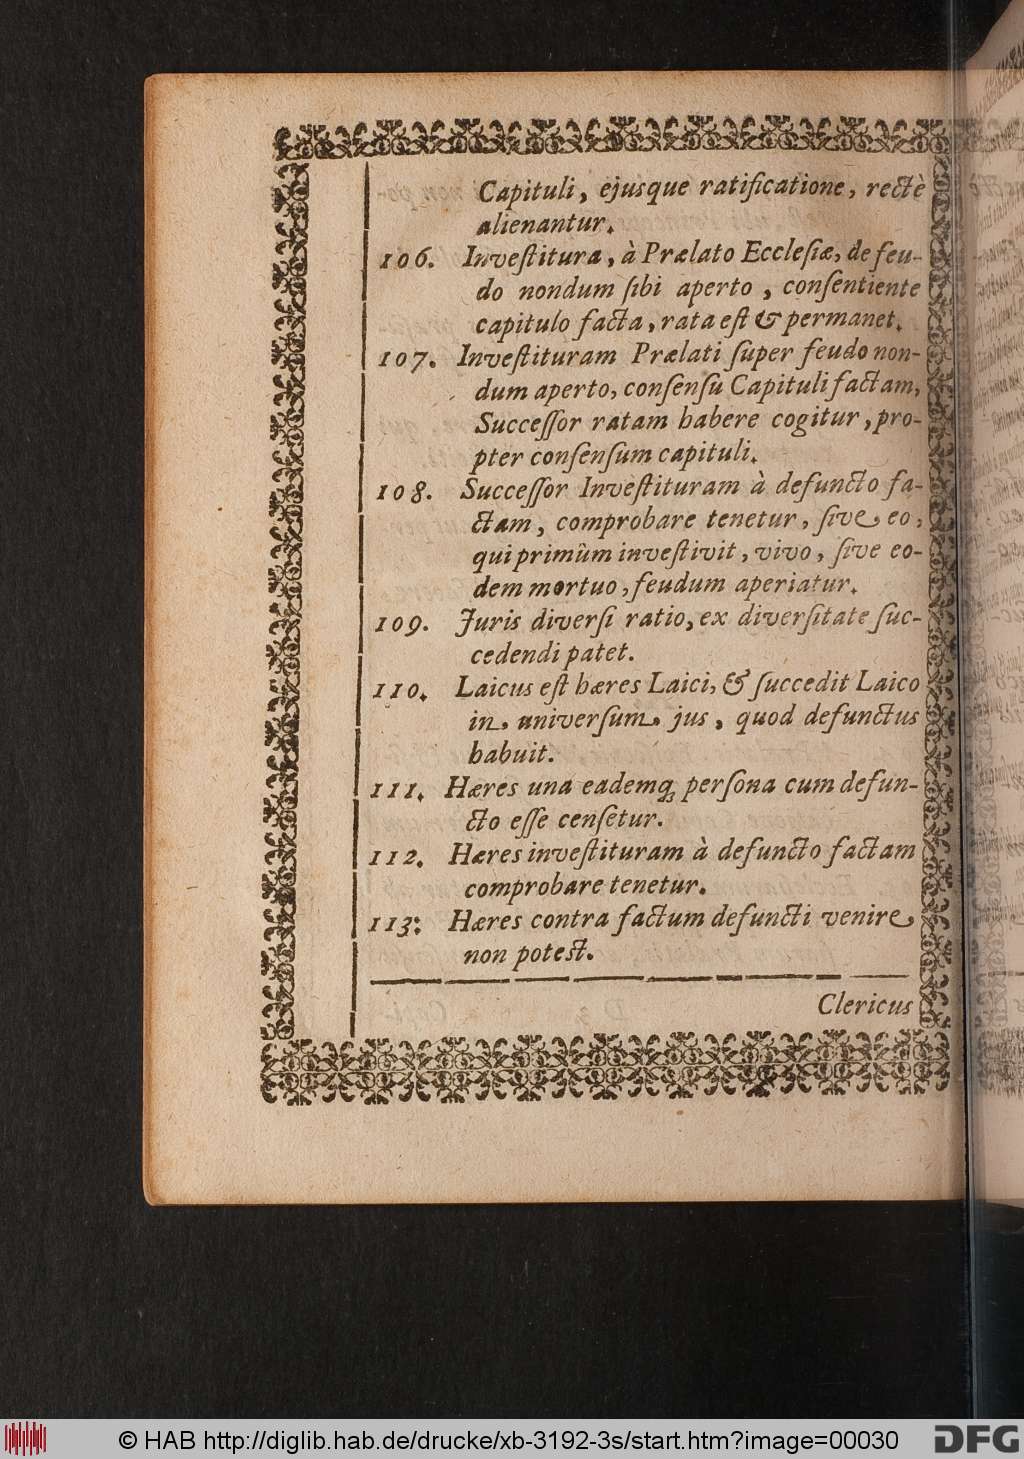 Capituli, ejusque ratificatione, rectè
alienantur.
106. Inveſtitura, à Prælato Eccleſiæ, de feu-
do nondum ſibi aperto, conſentiente
capitulo facta, rata eſt & permanet.
107. Inveſtituram Prælati ſuper feudo non-
dum aperto, conſenſu Capituli factam,
Succeſſor ratam habere cogitur, pro-
pter conſenſum capituli.
108. Succeſſor Inveſtituram à defuncto fa-
ctam, comprobare tenetur, ſive eo,
qui primùm inveſtivit, vivo, ſive eo-
dem mortuo, feudum aperiatur.
109. Juris diverſi ratio, ex diverſitate ſuc-
cedendi patet.
110. Laicus eſt hæres Laici, & ſuccedit Laico
in univerſum jus, quod defunctus
habuit.
111. Hæres una eademq; perſona cum defun-
cto eſſe cenſetur.
112. Hæres inveſtituram à defuncto factam
comprobare tenetur.
113: Hæres contra factum defuncti venire
non poteſt.
Clericus
© HAB http://diglib.hab.de/drucke/xb-3192-3s/start.htm?image=00030
DFG